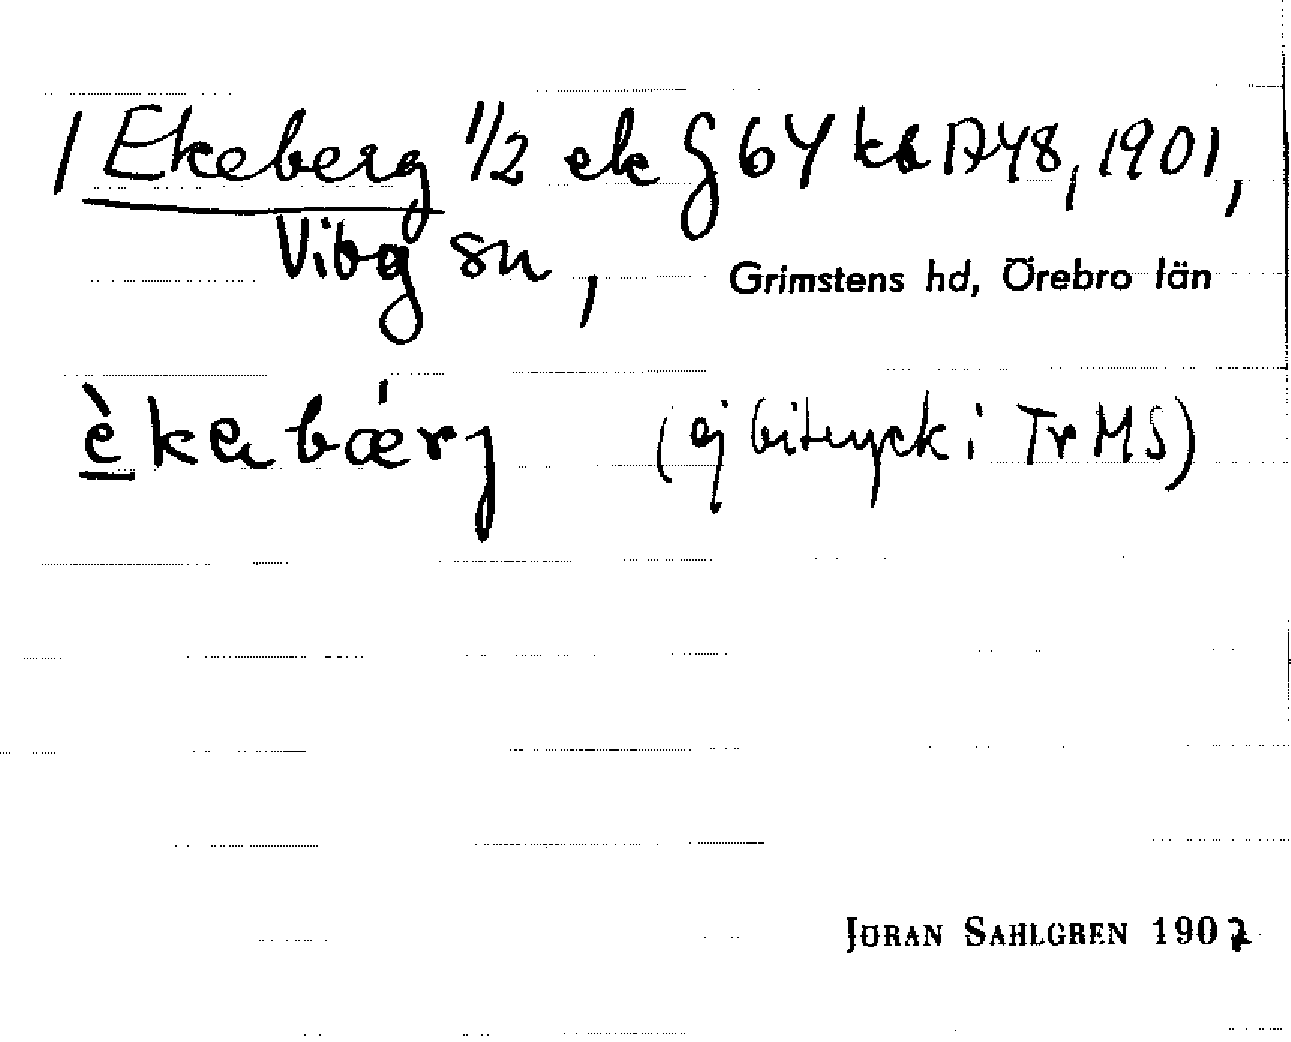 1 Ekeberg 1/2 ek G 64 ks 1748, 1901,
Vibg sn, Grimstens hd, Örebro län
èkabǽrj (ej bitryck i TrMS)
JÖRAN SAHLGREN 1907